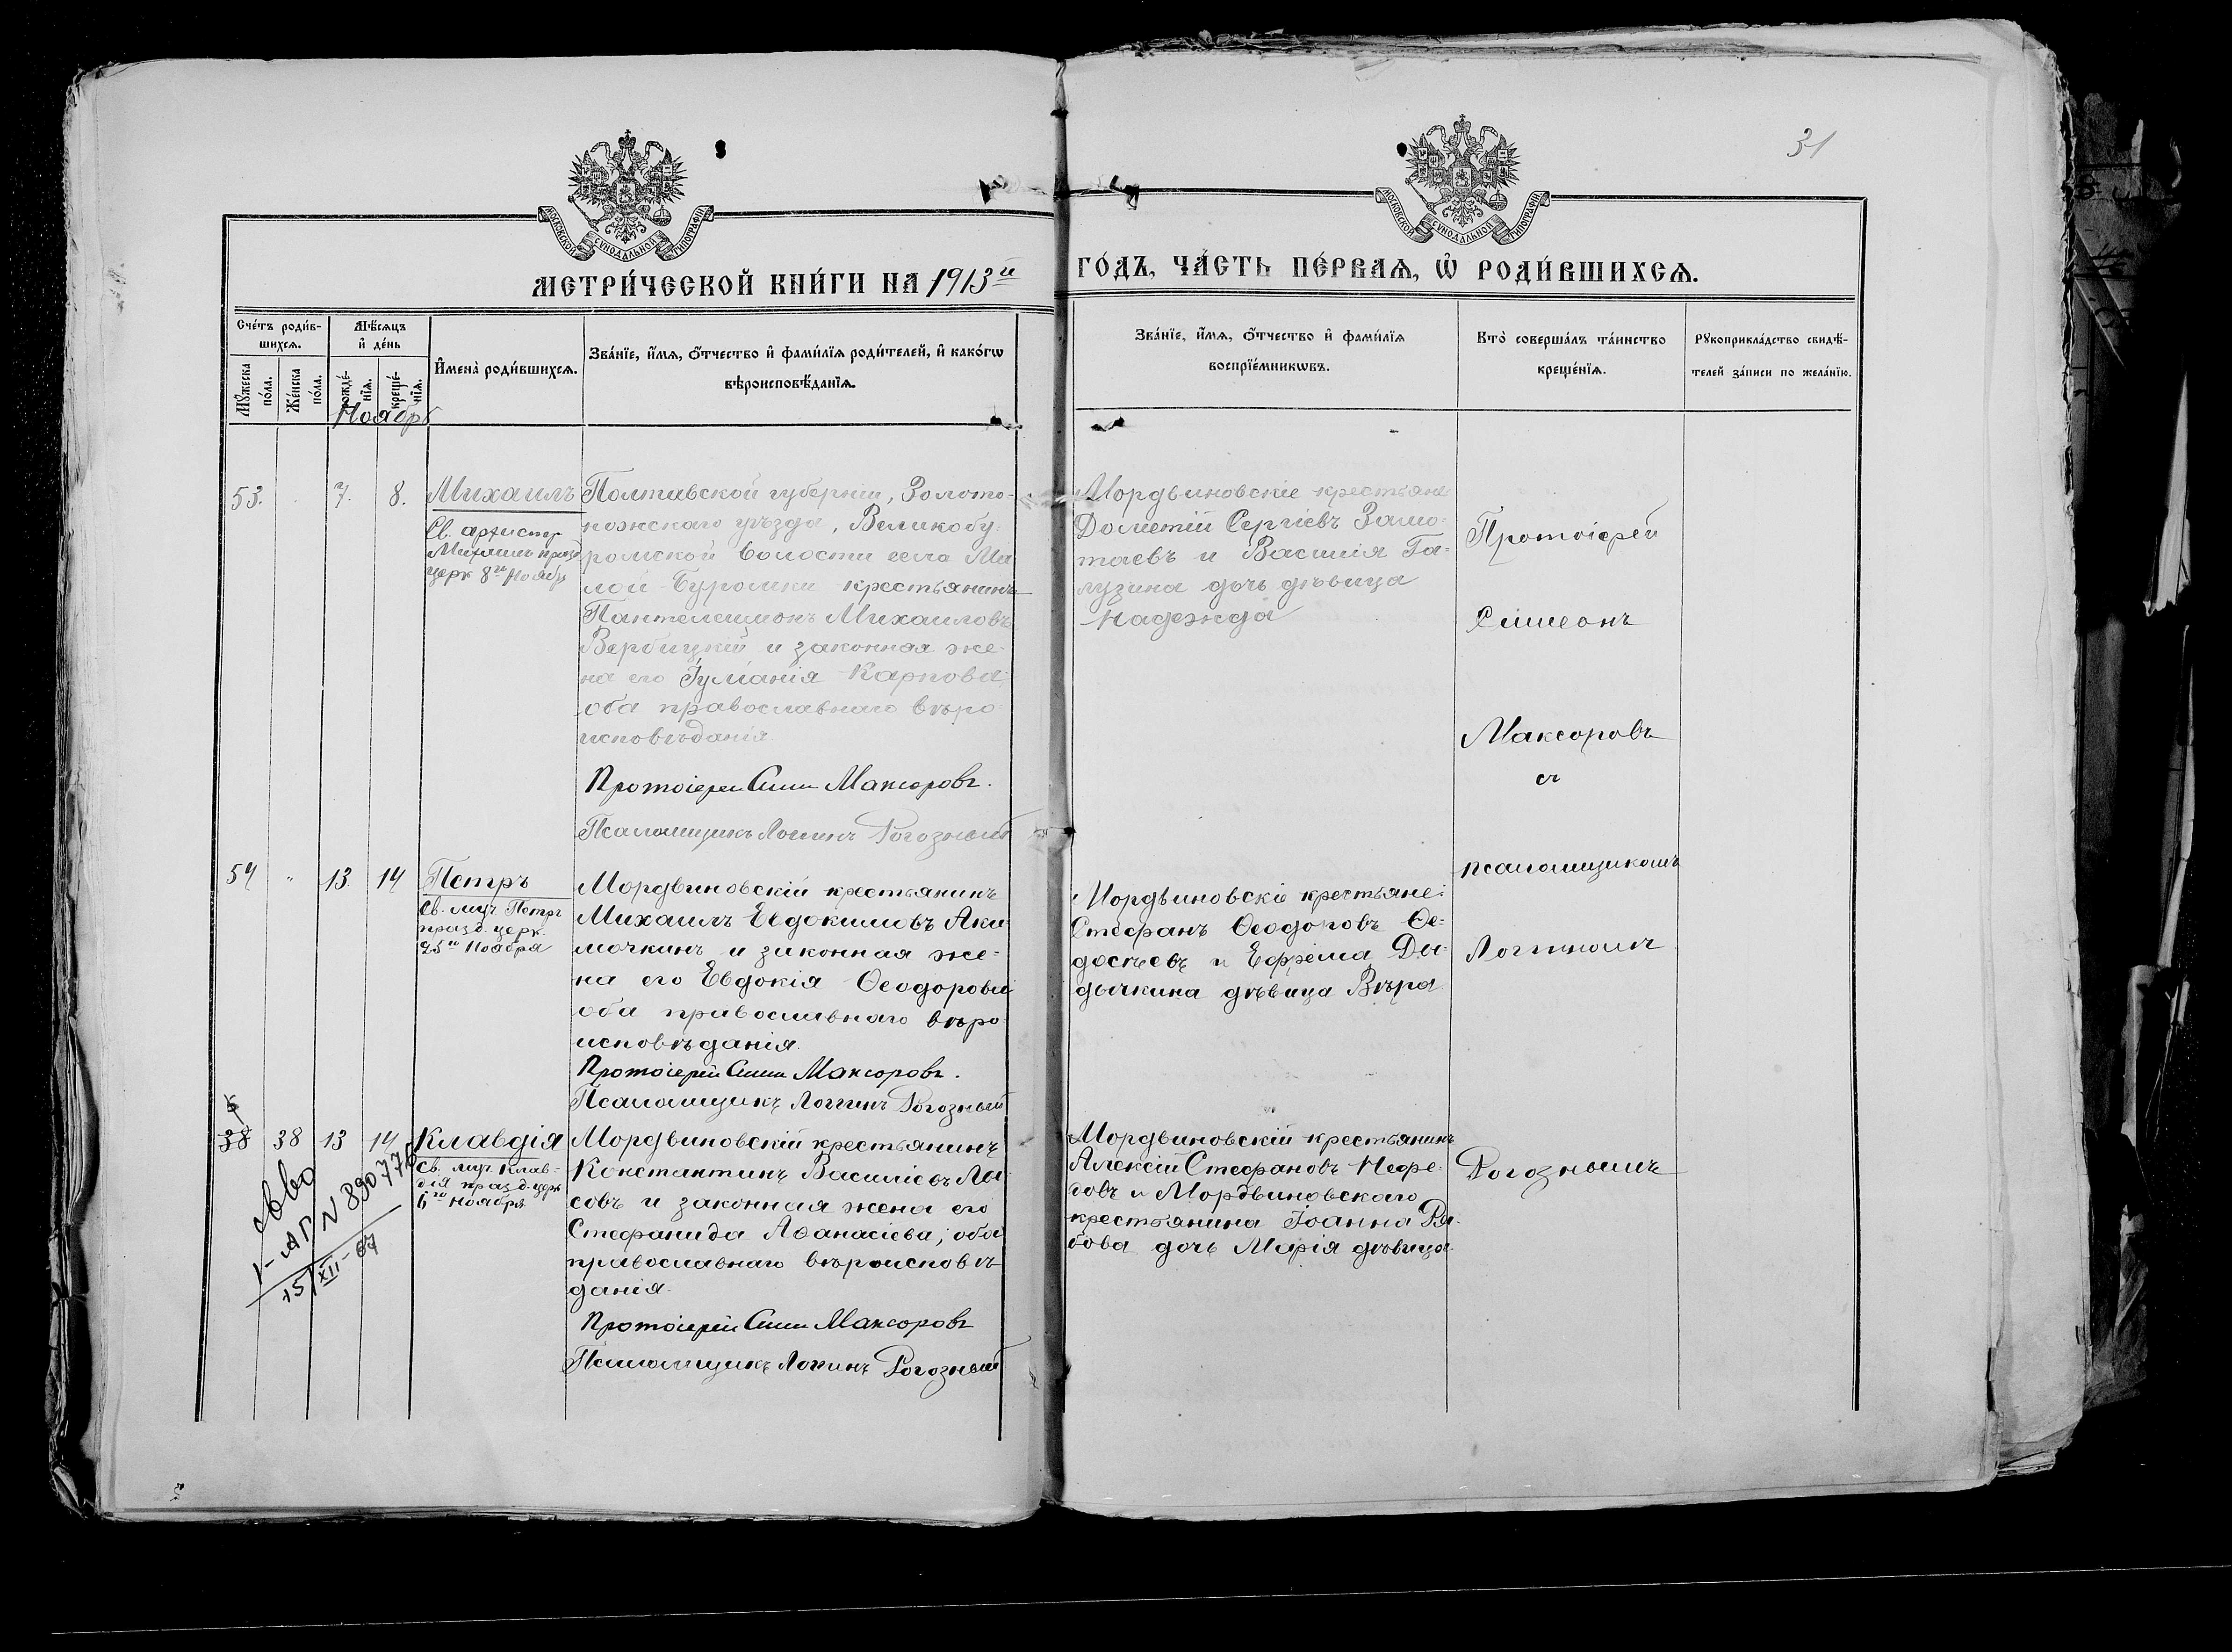 31
МОСКОВСКОЙ СУНОДАЛЬНОЙ ТИПОГРАФІИ
МОСКОВСКОЙ СУНОДАЛЬНОЙ ТИПОГРАФІИ
МЕТРИ́ЧЕСКОЙ КНИ́ГИ НА 1913й
ГО́ДЪ, ЧА́СТЬ ПЕ́РВАѦ, Ѽ РОДИ́ВШИХСѦ.
Сче́тъ роди́в-
шихсѧ.
Мѣ́сѧцъ
и҆ де́нь
Мꙋжеска
по́ла.
Же́нска
по́ла.
рожде́-
нїѧ.
креще́-
нїѧ.
И҆мена̀ роди́вшихсѧ.
Зва́нїе, и҆́мѧ, ѻ҆́тчество и҆ фами́лїѧ роди́телей, и҆ како́гѡ
вѣроисповѣ́данїѧ.
Зва́нїе, и҆́мѧ, ѻ҆́тчество и҆ фами́лїѧ
воспрїе́мникѡвъ.
Кто̀ соверша́лъ та́инство
креще́нїѧ.
Рꙋкоприкла́дство свидѣ́-
телей за́писи по жела́нїю.
Ноябрь
53. 7. 8. Михаилъ
Св. архистр
Михаилъ празд
церк 8го Ноября
Полтавской губерніи, Золото-
ножскаго уѣзда, Великобу-
ромской волости села Ма
лой-Буромки крестьянинъ
Пантелеимонъ Михаиловъ
Вербицкій и законная же-
на его Іуліанія Карпова
оба православнаго вѣро-
исповѣданія
Протоіерей Сим Максоровъ.
Псаломщикъ Логинъ Рогозный
Мордвиновскіе крестьяне
Дометій Сергіевъ Замо-
таевъ и Василія Га-
лузина дочь дѣвица
Надежда
Протоіерей
Симеонъ
Максоровъ
съ
псаломщикомъ
Логиномъ
Рогознымъ
54 " 13 14 Петръ
Св. муч Петръ
празд. церк.
25го Ноября
Мордвиновскій крестьянинъ
Михаилъ Евдокимовъ Аки
мочкинъ и законная же-
на его Евдокія Ѳеодорова
оба православнаго вѣро
исповѣданія.
Протоіерей Сим Максоровъ.
Псаломщикъ Логгинъ Рогозный
Мордвиновскіе крестьяне:
Стефанъ Ѳеодоровъ Ѳе-
досѣевъ и Ефрема Ды-
дычкина дѣвица Вѣра
38 38 13 14 Клавдія
Св. муч. Клав-
дія празд. церк
6го Ноября
Мордвиновскій крестьянинъ
Константинъ Василіевъ Лы-
совъ и законная жена его
Стефанида Аѳанасіева; оба
православнаго вѣроисповѣ
данія.
Протоіерей Сим Максоровъ
Псаломщикъ Логинъ Рогозный
Мордвиновскій крестьянинъ
Алексій Стефановъ Нефе-
довъ и Мордвиновскаго
крестьянина Іоанна Ря-
бова дочь Марія дѣвица
св-во
I-АГ N 890776
15/XII-67